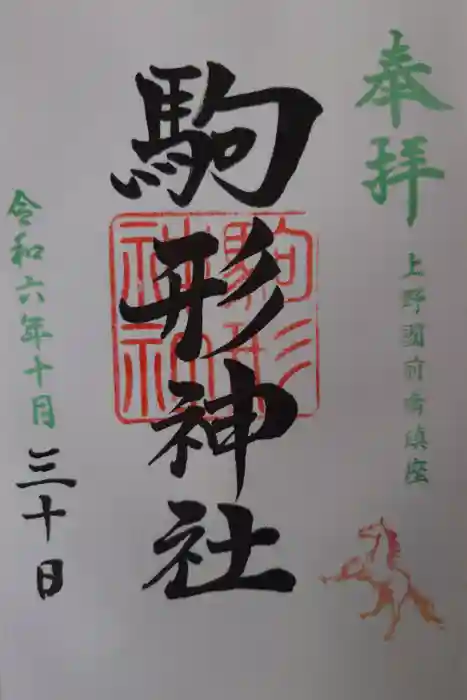 奉拝
上野國前橋鎮座
駒形神社
駒形
神社
令和六年十月三十日